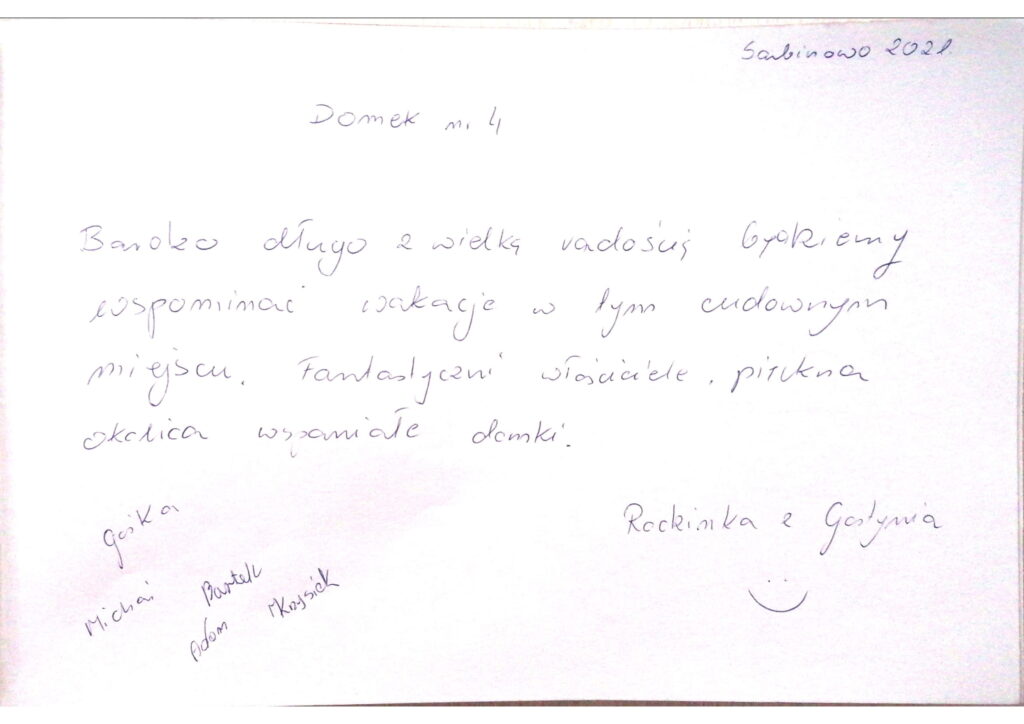 Sarbinowo 2021
Domek nr. 4
Bardzo długo z wielką radością będziemy
wspominać wakacje w tym cudownym
miejscu. Fantastyczni właściciele, piękna
okolica wspaniałe domki.
Rodzinka z Gostynia
Gośka
Michał Bartek
Adam Krzysiek